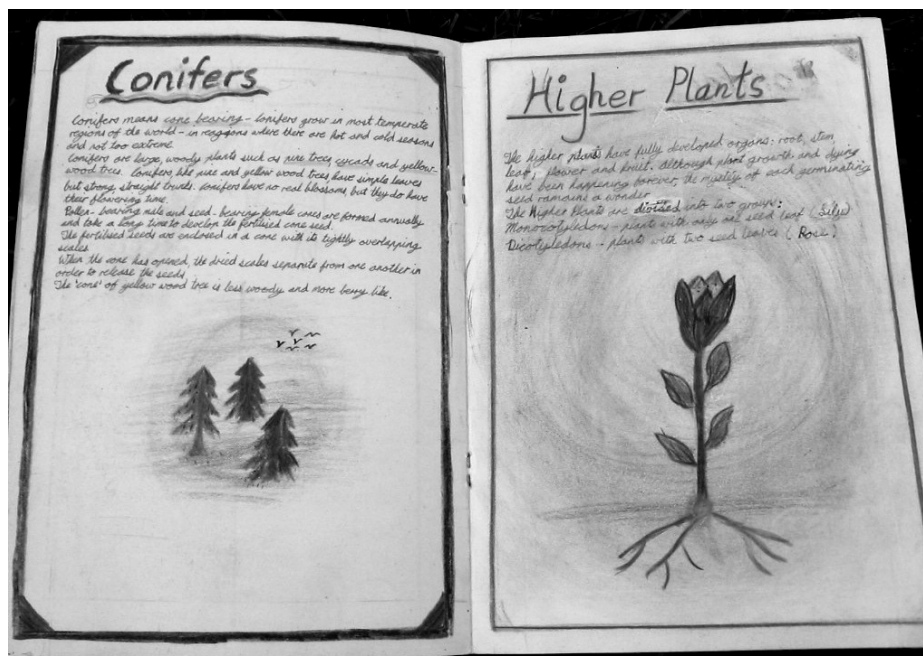 Conifers
Conifers means cone bearing - Conifers grow in most temperate
regions of the world - in reagsions where there are hot and cold seasons
and not too extreme.
Conifers are large, woody plants such as pine trees, cycads and yellow-
wood trees. Conifers like pine and yellow wood trees have simple leaves
but strong, straight trunks. Conifers have no real blossoms, but they do have
their flowering time.
Pollen-bearing male and seed-bearing female cones are formed annually
and take a long time to develop the fertilised cone seed.
The fertilised seeds are enclosed in a cone with its tightly overlapping
scales
When the cone has opened, the dried scales separate from one another in
order to release the seeds
The 'cone' of yellow wood tree is less woody and more berry like.
Higher Plants
The higher plants have fully developed organs: root, stem
leaf, flower and fruit. although plant growth and dying
have been happening forever, the mystery of each germinating
seed ramains a wonder
The Higher Plants are divised into two groups:
Monocotyledons - plant with only one seed leaf
Dicotyledons - plants with two seed leaves (Rose)